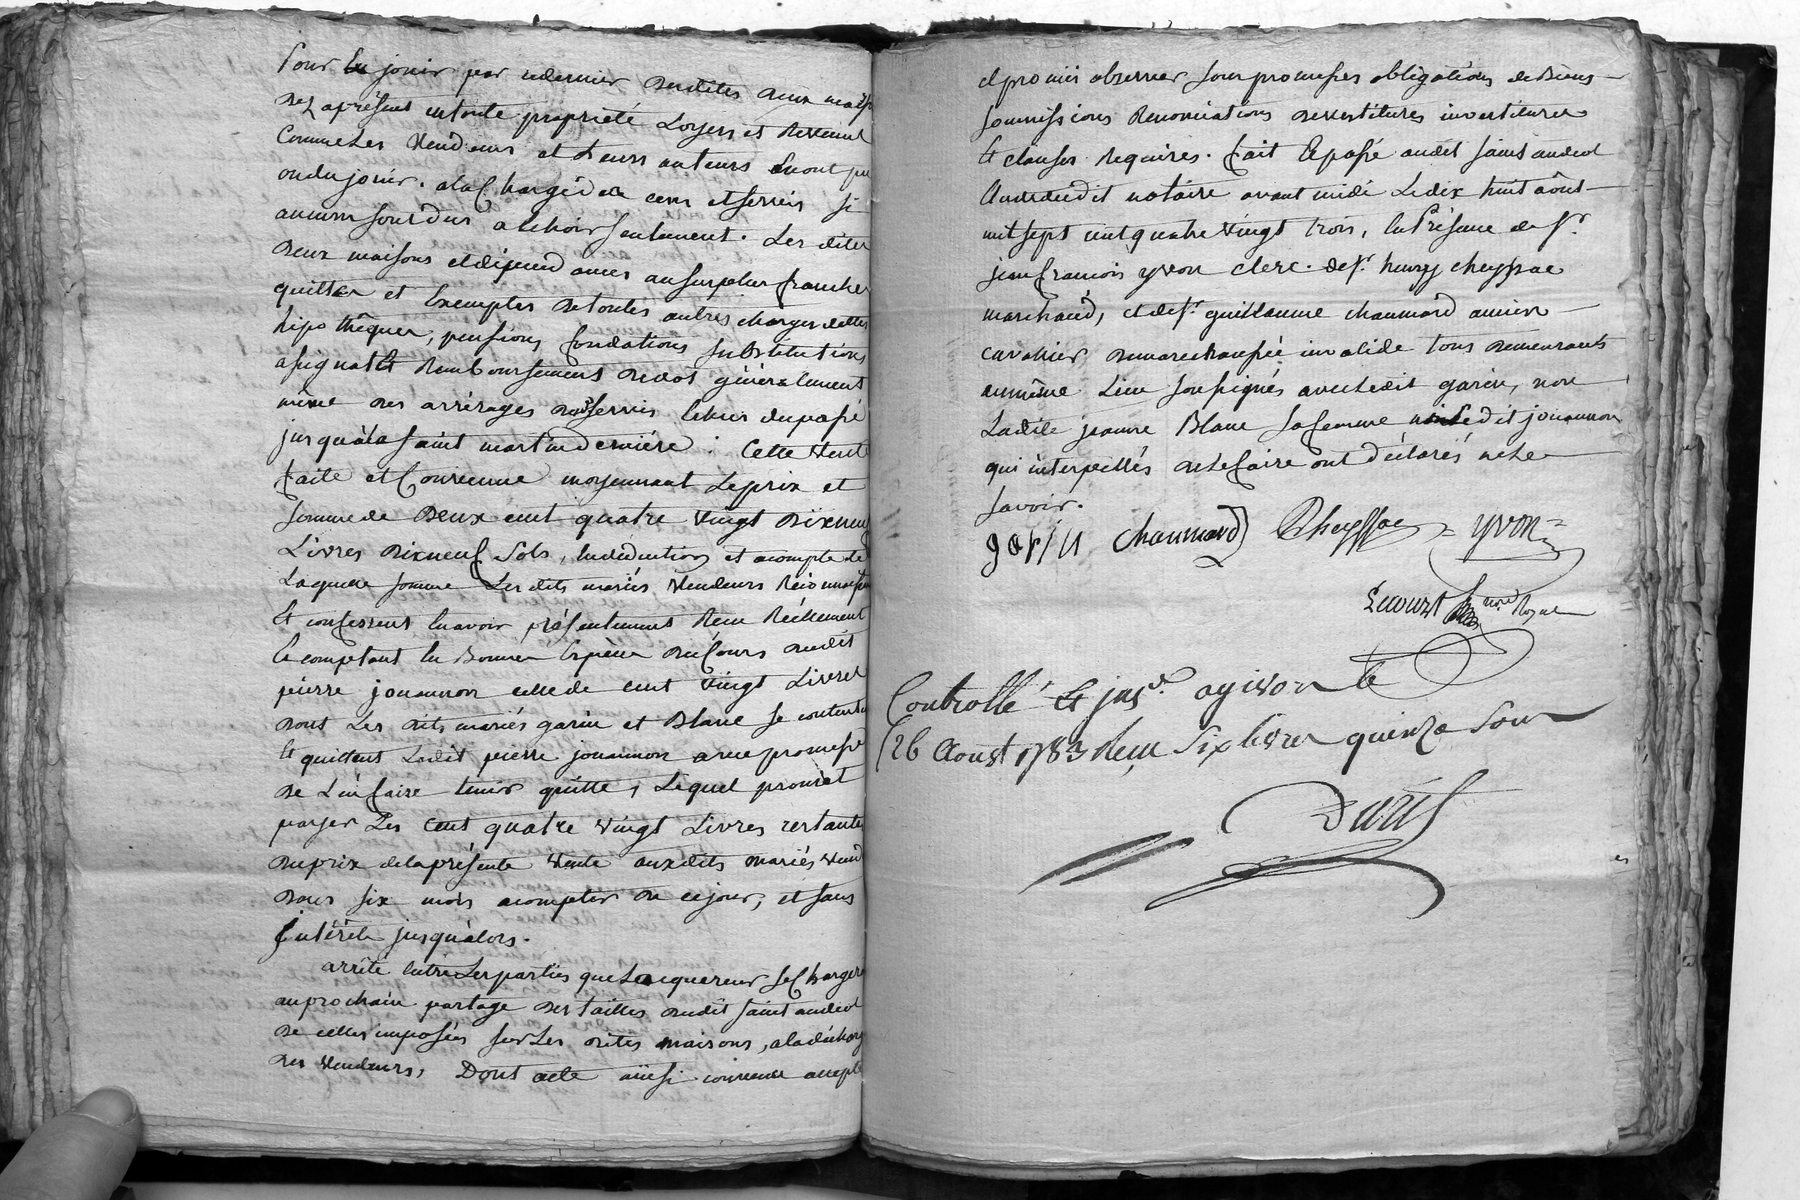 Pour en jouir par cedernier desdites deux maisons
dez aprésent entoute propriété Loyers et Revenus
Comme Les Vendeurs et Leurs auteurs en ont pu
ou du jouir. alaCharge de cens et servis si
aucuns sont dus a Echoir seulement. Les dites
deux maisons et dépendances au surplus franches
quittes et Exemptes de toutes autres charges dettes
hipothêques, pensions fondations substitutions
assignats et Remboursement de dot généralement
même des arrérages desd servis Echus du passé
jusqu'àla saint martin derniére. Cette Vente
faite et Convenue moyennant Le prix et
somme de Deux cent quatre Vingt Dixneuf
Livres dixneuf sols, En déduction et acompte de
Laquelle somme Les dits mariés Vendeurs Reconnoissent
Et confessent En avoir présentement Reçu Réellement
le comptant En bonnes Espèces du Cours dudit
pierre jouannon celle de cent Vingt Livres
dont Les dits mariés garin et Blanc se contentent
Et quittent Ledit pierre jouannon avec promesse
de L'en faire tenir quitte, Lequel promet
payer Les cent quatre Vingt Livres restantes
du prix de la présente Vente auxdits mariés Vend
dans six mois acompter de cejour, et sans
Intérêts jusqu'alors.
arrêté Entre Les parties que Lacquereur se Chargera
au prochain partage des tailles dudit saint andéol
de celles imposées sur Les dites maisons, a la décharge
des Vendeurs, Dont acte ainsi convenu accepté
et promis observer sous promesses obligations de Biens
soumissions Renonciations devestitures investitures
Et clauses Requises. fait Et passé audit saint andéol
Etude dudit notaire avant midi Le dix huit août
mil sept cent quatre Vingt trois, En Présence de Sr.
jean francois yvon clerc. de Sr. henry cheyssac
marchand, et de Sr. guillaume chaumard ancien
cavalier de marechaussée invalide tous demeurants
au même Lieu soussignés avec ledit garin, non
Ladite jeanne Blanc sa femme ni Ledit jouannon
qui interpellés de le faire ont déclarés ne le
savoir.
garin chaumard Cheyssac yvon
nore Royal
Controllé Et Insé. a givors le
26 Aoust 1783 Reçu six livres quinze sous